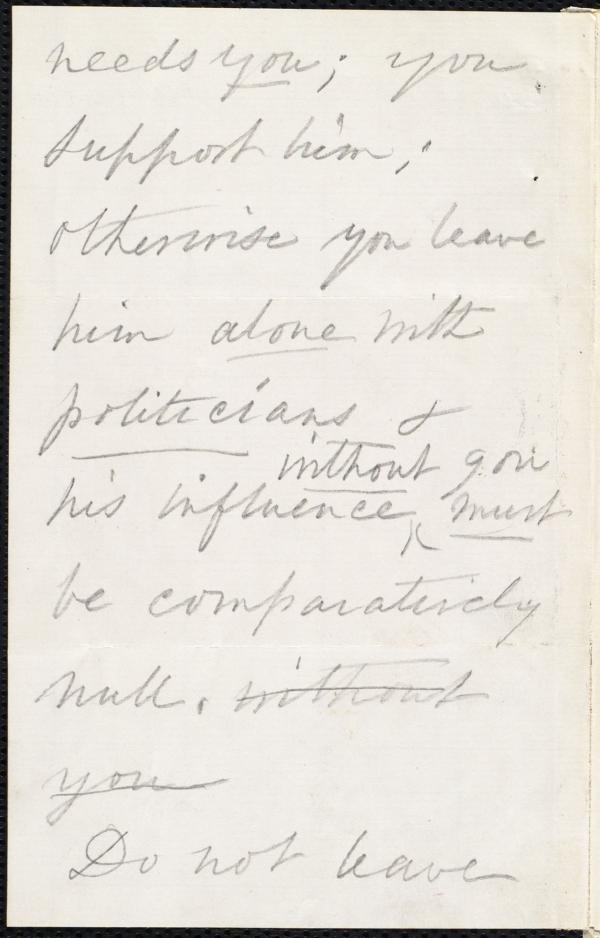 needs you; you
support him;
otherwise you leave
him alone with
politicians &
without you
his influence ^ must
be comparatively
null. without
you
Do not leave